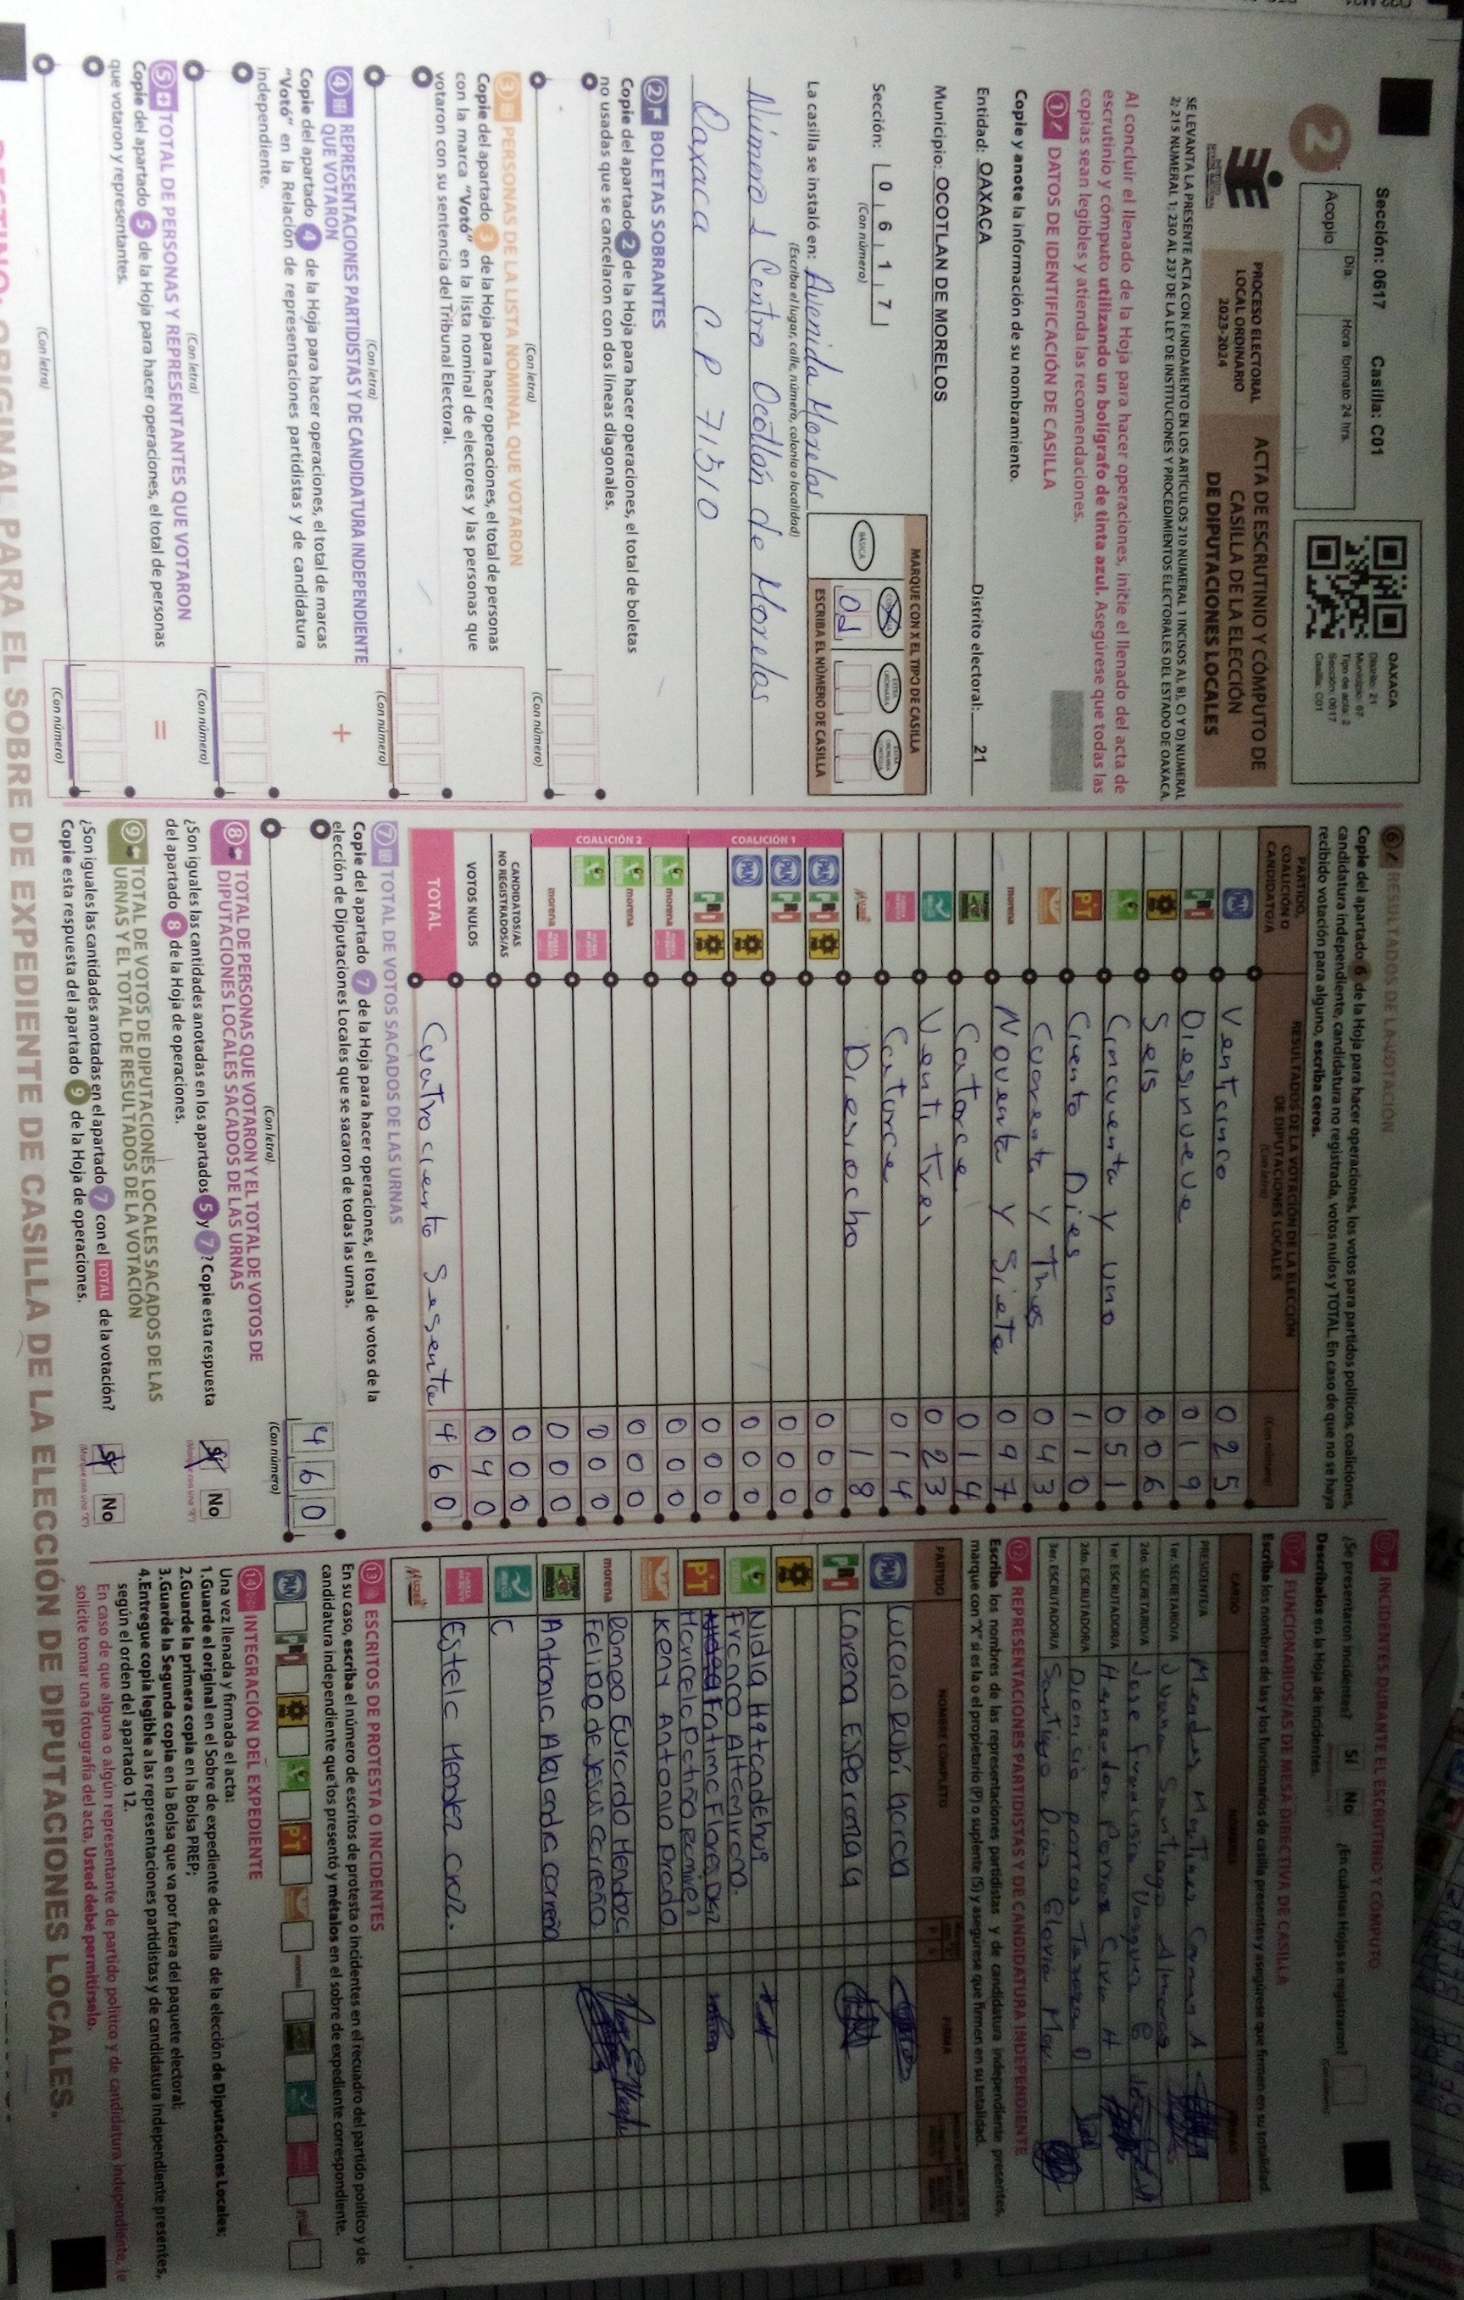 Sección: 0617 Casilla: C01
2
Acopio
Día:
Hora: formato 24 hrs.
OAXACA
Distrito: 21
Municipio: 67
Tipo de acta: 2
Sección: 0617
Casilla: C01
PROCESO ELECTORAL
LOCAL ORDINARIO
2023-2024
ACTA DE ESCRUTINIO Y CÓMPUTO DE
CASILLA DE LA ELECCIÓN
DE DIPUTACIONES LOCALES
SE LEVANTA LA PRESENTE ACTA CON FUNDAMENTO EN LOS ARTÍCULOS 210 NUMERAL 1 INCISOS A), B), C) Y D) NUMERAL
2; 215 NUMERAL 1; 230 AL 237 DE LA LEY DE INSTITUCIONES Y PROCEDIMIENTOS ELECTORALES DEL ESTADO DE OAXACA.
Al concluir el llenado de la Hoja para hacer operaciones, inicie el llenado del acta de
escrutinio y cómputo utilizando un bolígrafo de tinta azul. Asegúrese que todas las
copias sean legibles y atienda las recomendaciones.
1 DATOS DE IDENTIFICACIÓN DE CASILLA
Copie y anote la información de su nombramiento.
Entidad: OAXACA Distrito electoral: 21
Municipio: OCOTLAN DE MORELOS
Sección: 0 6 1 7
(Con número)
MARQUE CON X EL TIPO DE CASILLA
BÁSICA
01
ESCRIBA EL NÚMERO DE CASILLA
La casilla se instaló en: Avenida Morelos
(Escriba el lugar, calle, número, colonia o localidad)
Número 1 Centro Ocotlán de Morelos
Oaxaca C.P. 71510
2 BOLETAS SOBRANTES
Copie del apartado 2 de la Hoja para hacer operaciones, el total de boletas
no usadas que se cancelaron con dos líneas diagonales.
(Con letra) (Con número)
3 PERSONAS DE LA LISTA NOMINAL QUE VOTARON
Copie del apartado 3 de la Hoja para hacer operaciones, el total de personas
con la marca "Votó" en la lista nominal de electores y las personas que
votaron con su sentencia del Tribunal Electoral.
(Con letra) (Con número)
4 REPRESENTACIONES PARTIDISTAS Y DE CANDIDATURA INDEPENDIENTE
QUE VOTARON
Copie del apartado 4 de la Hoja para hacer operaciones, el total de marcas
"Votó" en la Relación de representaciones partidistas y de candidatura
independiente.
(Con letra) (Con número)
5 TOTAL DE PERSONAS Y REPRESENTANTES QUE VOTARON
Copie del apartado 5 de la Hoja para hacer operaciones, el total de personas
que votaron y representantes.
(Con letra) (Con número)
6 RESULTADOS DE LA VOTACIÓN
Copie del apartado 6 de la Hoja para hacer operaciones, los votos para partidos políticos, coaliciones,
candidatura independiente, candidatura no registrada, votos nulos y TOTAL. En caso de que no se haya
recibido votación para alguno, escriba ceros.
PARTIDO,
COALICIÓN O
CANDIDATO/A
RESULTADOS DE LA VOTACIÓN DE LA ELECCIÓN
DE DIPUTACIONES LOCALES
(Con letra)
(Con número)
PAN Venticinco 025
PRI Diesinueve 019
PRD Seis 006
Cincuenta y uno 051
PT Ciento Dies 110
Cuarenta y Tres 043
morena Noventa y Siete 097
Catorce 014
Venti tres 023
Catorce 014
Diesiocho 18
COALICIÓN 1
PAN PRI PRD 000
PAN PRI 000
PAN PRD 000
PRI PRD 000
COALICIÓN 2
morena 000
morena 000
000
morena 000
CANDIDATOS/AS
NO REGISTRADOS/AS 000
VOTOS NULOS 040
TOTAL Cuatrociento Sesenta 460
7 TOTAL DE VOTOS SACADOS DE LAS URNAS
Copie del apartado 7 de la Hoja para hacer operaciones, el total de votos de la
elección de Diputaciones Locales que se sacaron de todas las urnas.
460
(Con letra) (Con número)
8 TOTAL DE PERSONAS QUE VOTARON Y EL TOTAL DE VOTOS DE
DIPUTACIONES LOCALES SACADOS DE LAS URNAS
¿Son iguales las cantidades anotadas en los apartados 5 y 7? Copie esta respuesta
del apartado 8 de la Hoja de operaciones.
Sí No
9 TOTAL DE VOTOS DE DIPUTACIONES LOCALES SACADOS DE LAS
URNAS Y EL TOTAL DE RESULTADOS DE LA VOTACIÓN
¿Son iguales las cantidades anotadas en el apartado 7 con el TOTAL de la votación?
Copie esta respuesta del apartado 9 de la Hoja de operaciones.
Sí No
10 INCIDENTES DURANTE EL ESCRUTINIO Y CÓMPUTO
¿Se presentaron incidentes? Sí No ¿En cuántas Hojas se registraron?
Descríbalos en la Hoja de incidentes.
11 FUNCIONARIOS/AS DE MESA DIRECTIVA DE CASILLA
Escriba los nombres de las y los funcionarios de casilla presentes y asegúrese que firmen en su totalidad.
CARGO NOMBRE FIRMAS
PRESIDENTE/A
1er. SECRETARIO/A Juana Santiago
2do. SECRETARIO/A Jose
1er. ESCRUTADOR/A
2do. ESCRUTADOR/A Dionicio
3er. ESCRUTADOR/A Santiago Dias
12 REPRESENTACIONES PARTIDISTAS Y DE CANDIDATURA INDEPENDIENTE
Escriba los nombres de las representaciones partidistas y de candidatura independiente presentes,
marque con "X" si es la o el propietario (P) o suplente (S) y asegúrese que firmen en su totalidad.
PARTIDO NOMBRE COMPLETO FIRMA
PAN Lucero Rubí Garcia
PRI Lorena Esperanza
PRD
Nidia
Franco Altamirano.
PT Fatima Flores
Maricela Patiño Ramirez
Keny Antonio Prado
morena Romeo Eucardo Mendez
Felipe de Jesus Carreño
C
Estela Mendez Cruz.
13 ESCRITOS DE PROTESTA O INCIDENTES
En su caso, escriba el número de escritos de protesta o incidentes en el recuadro del partido político y de
candidatura independiente que los presentó y métalos en el sobre de expediente correspondiente.
PAN PRI PRD PT morena
14 INTEGRACIÓN DEL EXPEDIENTE
Una vez llenada y firmada el acta:
1.Guarde el original en el Sobre de expediente de casilla de la elección de Diputaciones Locales;
2.Guarde la primera copia en la Bolsa PREP;
3.Guarde la Segunda copia en la Bolsa que va por fuera del paquete electoral;
4.Entregue copia legible a las representaciones partidistas y de candidatura independiente presentes,
según el orden del apartado 12.
En caso de que alguna o algún representante de partido político y de candidatura independiente, le
solicite tomar una fotografía del acta, Usted debe permitírselo.
DESTINO: ORIGINAL PARA EL SOBRE DE EXPEDIENTE DE CASILLA DE LA ELECCIÓN DE DIPUTACIONES LOCALES.